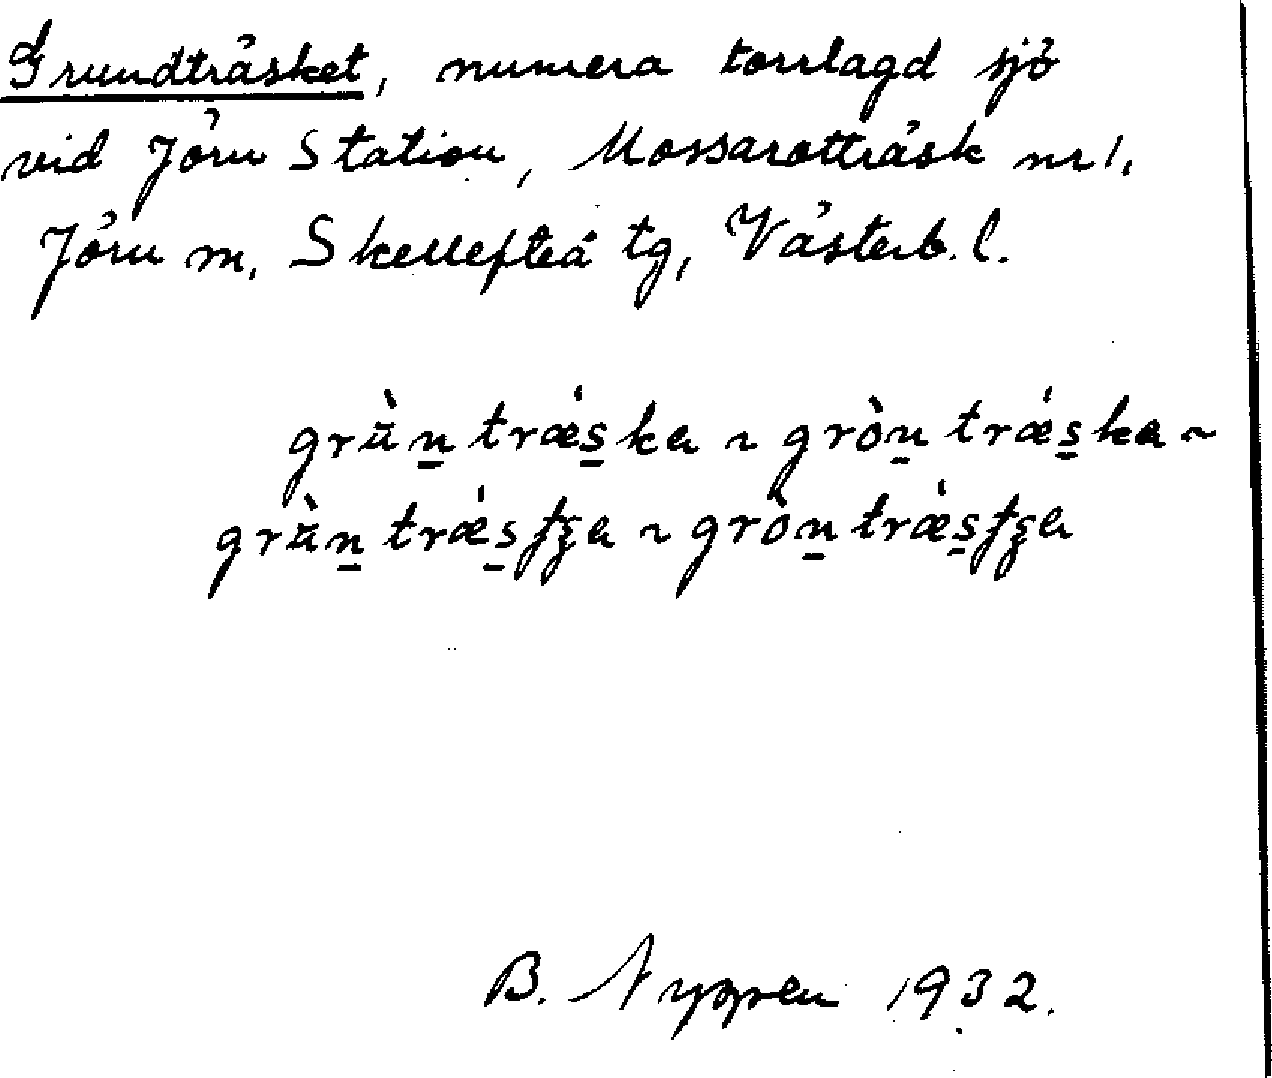 Grundträsket, numera torrlagd sjö
vid Jörn Station, Mossarotträsk nr 1.
Jörn m. Skellefteå tg, Västerb. l.
grùn trǽska ~ gròn trǽska ~
grùn trǽsʃʒa ~ gròn trǽsʃʒa
B. Nygren 1932.